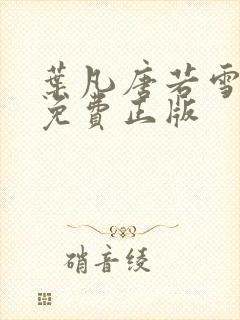 葉凡唐若雪
免費正版
硝音绫